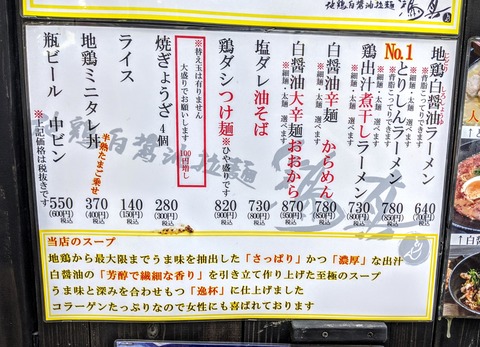 地鶏白醤油拉麺
地鶏白醤油ラーメン
※背脂こってりできます
640
(700円)
税込
No.1
とりしんラーメン
※背脂こってりできます
※細麺・太麺 選べます
780
(850円)
税込
鶏出汁煮干しラーメン
※細麺・太麺 選べます
730
(800円)
税込
白醤油辛麺 からめん
※細麺・太麺 選べます
780
(850円)
税込
白醤油大辛麺 おおから
※細麺・太麺 選べます
870
(950円)
税込
塩ダレ油そば
730
(800円)
税込
鶏ダシつけ麺
※ひや盛りです
820
(900円)
税込
※替え玉は有りません
大盛りでお願いします
100円増し
焼ぎょうざ 4個
280
(300円)
税込
ライス
140
(150円)
税込
地鶏ミニタレ丼
半熟たまご乗せ
370
(400円)
税込
瓶ビール 中ビン
550
(600円)
税込
※上記価格は税抜きです
地鶏白醤油拉麺
当店のスープ
地鶏から最大限までうま味を抽出した「さっぱり」かつ「濃厚」な出汁
白醤油の「芳醇で繊細な香り」を引き立て作り上げた至極のスープ
うま味と深みを合わせもつ「逸杯」に仕上げました
コラーゲンたっぷりなので女性にも喜ばれております